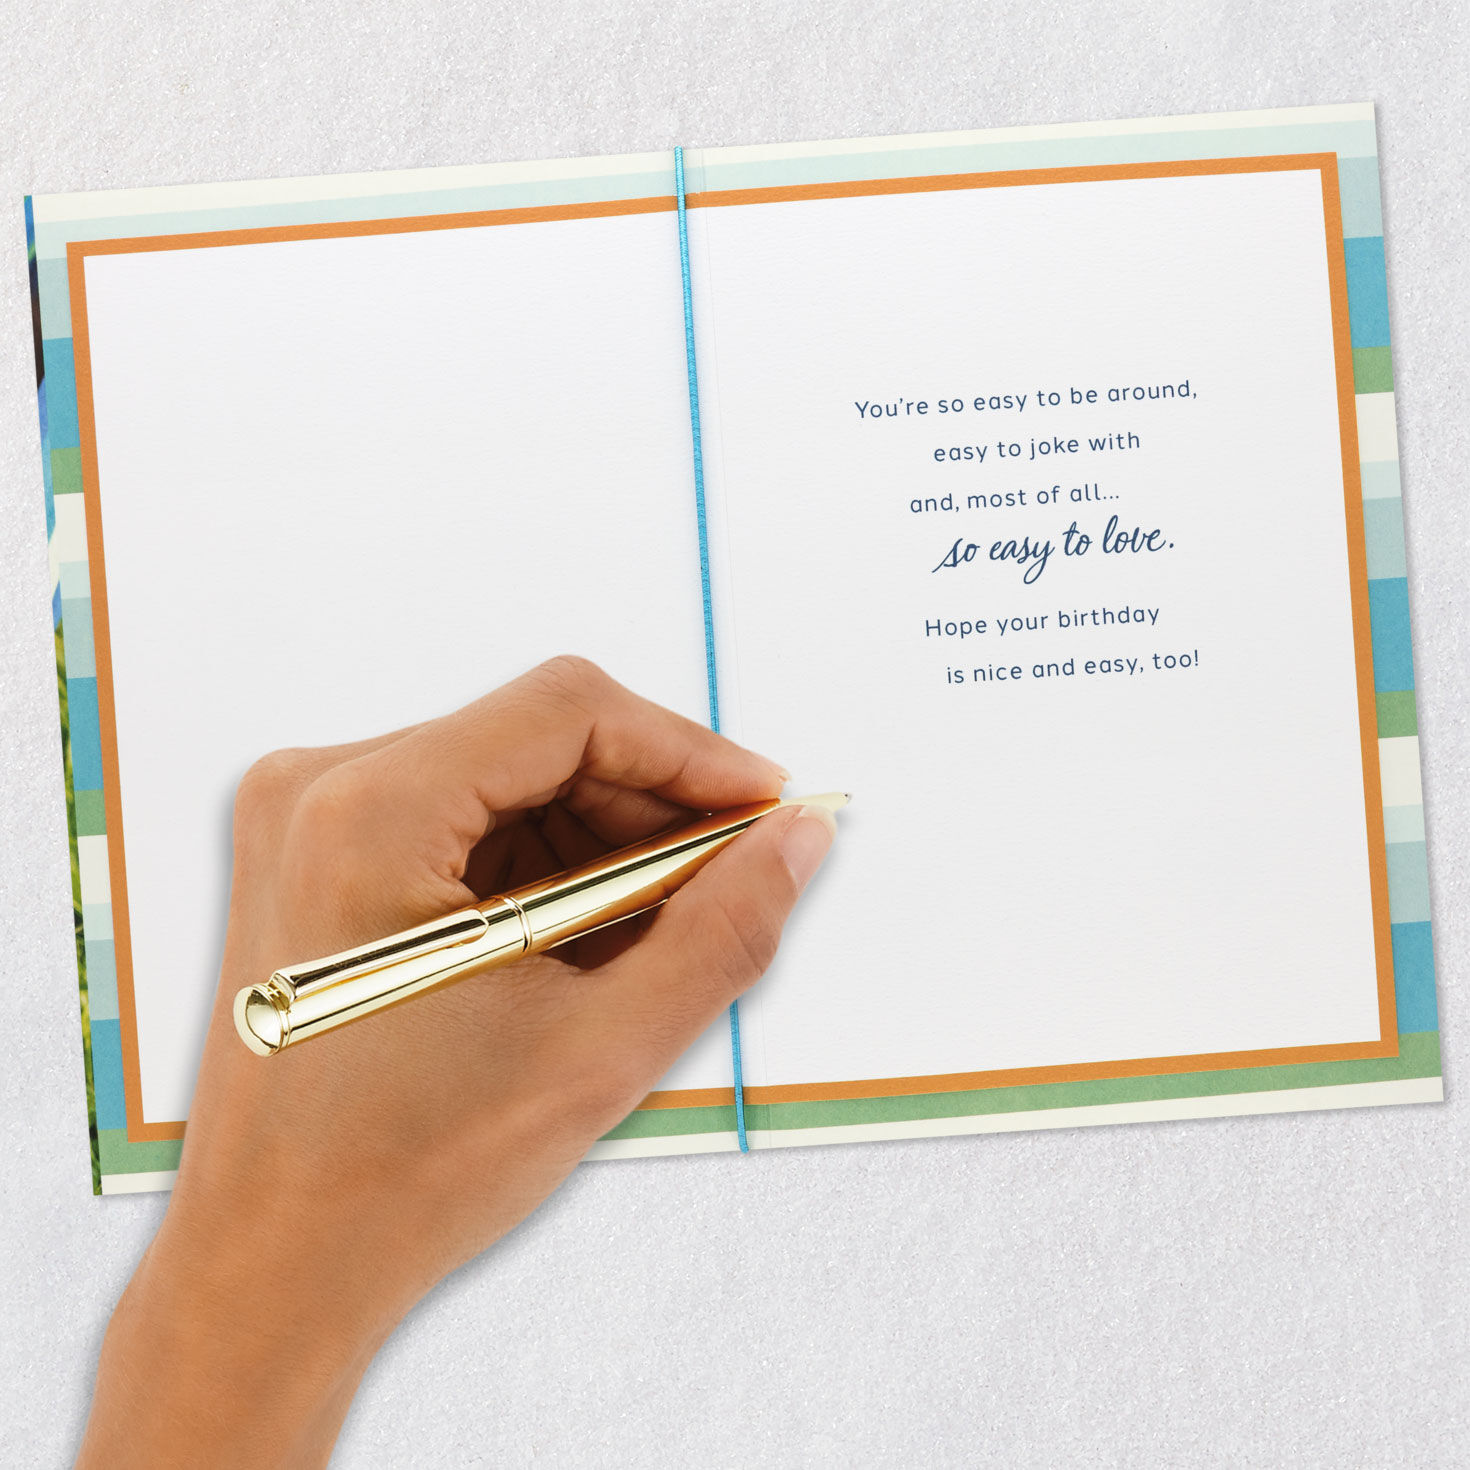 You're so easy to be around,
easy to joke with
and, most of all...
so easy to love.
Hope your birthday
is nice and easy, too!